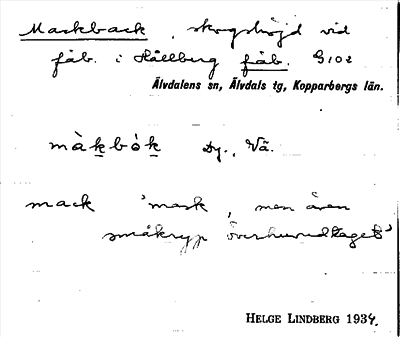 Mackback, skogshöjd vid
fäb. i Hållberg fäb. G102
Älvdalens sn, Älvdals tg, Kopparbergs län.
màkbòk Dy., Vä.
mack 'mask, men även
småkryp överhuvudtaget'
HELGE LINDBERG 1934.